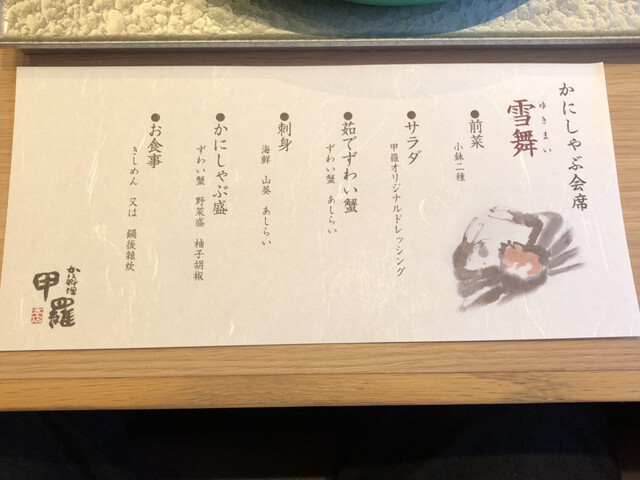 かにしゃぶ会席
雪舞
ゆきまい
●前菜
小鉢二種
●サラダ
甲羅オリジナルドレッシング
●茹でずわい蟹
ずわい蟹 あしらい
●刺身
海鮮 山葵 あしらい
●かにしゃぶ盛
ずわい蟹 野菜盛 柚子胡椒
●お食事
きしめん 又は 鍋後雑炊
かに料理
甲羅
本店